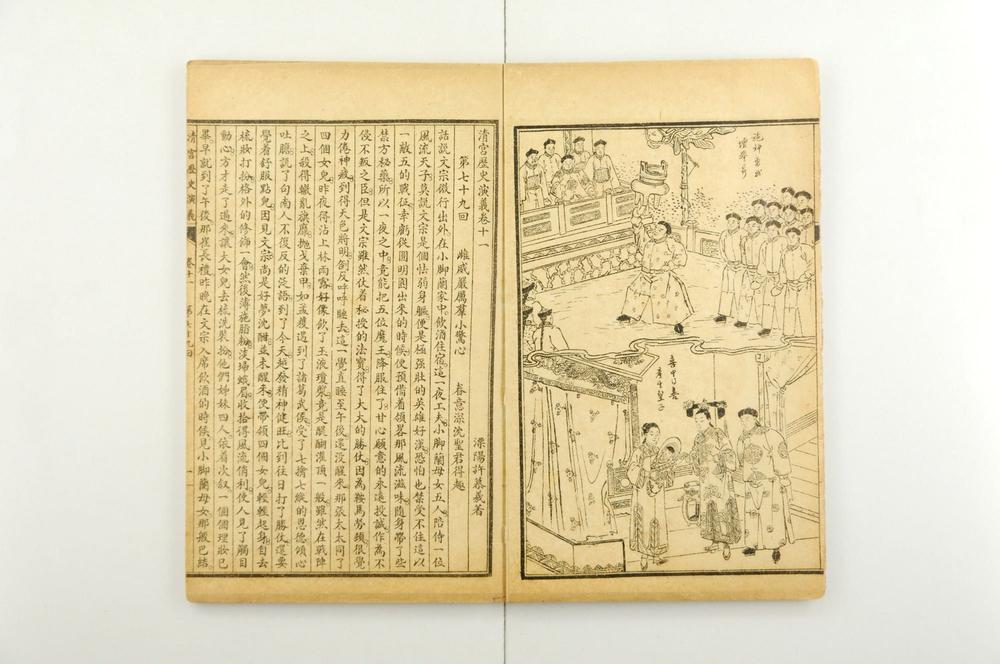 產生皇子
清宮歷史演義卷十一
溧陽許慕羲著
第七十九回　雌威嚴厲羣小驚心　春意濃沈聖君得趣
話說文宗微行出外在小腳蘭家中飲酒住宿這一夜工夫小腳蘭母女五人陪侍一位
風流天子莫說文宗是個怯弱身軀便是極强壯的英雄好漢恐怕也禁受不住這以
一敵五的戰征幸虧從圓明園出來的時候便預備着領畧那風流滋味隨身帶了些
禁方秘藥所以一夜之中竟能把五位魔王降服住了甘心願意的永遠投誠作為不
侵不叛之臣但是文宗雖然仗着秘授的法寶得了大大的勝仗因為鞍馬勞頓很覺
力倦神疲到得天色將明倒反呼呼睡去這一覺直睡至午後還沒醒來那張太太同了
四個女兒昨夜得沾上林雨露好像飲了玉液瓊漿竟是醍醐灌頂一般雖然在戰陣
之上殺得轍亂旗靡拋戈棄甲如孟獲遇到了諸葛武侯受了七擒七縱的恩德傾心
吐膽說了句南人不復反的淡話到了今天越發精神健旺比到往日打了勝仗還要
覺着舒服點兒因見文宗尚是好夢沉酣並未醒來便帶領四個女兒輕輕起身自去
梳妝打扮格外的修飾一會然後薄施脂粉淡掃蛾眉收拾得風流俏利使人見了觸目
動心方才走了過來讓大女兒去梳洗裝扮他們姊妹四人依着次叙一個個理妝已
畢早就到了午後那崔長禮昨晚在文宗入席飲酒的時候見小腳蘭母女那般巴結
清宮歷史演義　卷十一　第七十九回　一